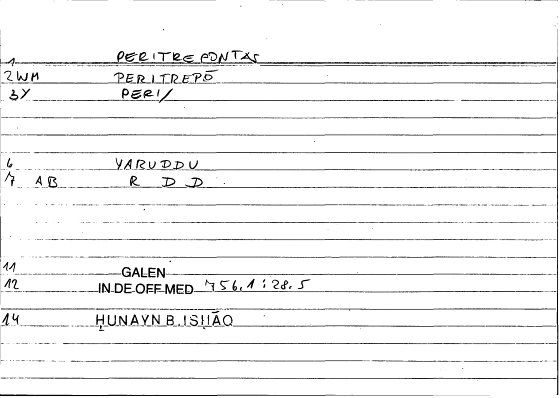 1 PERITREPONTAS
2WM PERITREPŌ
3Y PERI/
6 YARUDDU
7 AB R D D
11 GALEN
12 IN DE OFF MED 756.1:28.5
14 ḤUNAYN B. ISḤĀQ